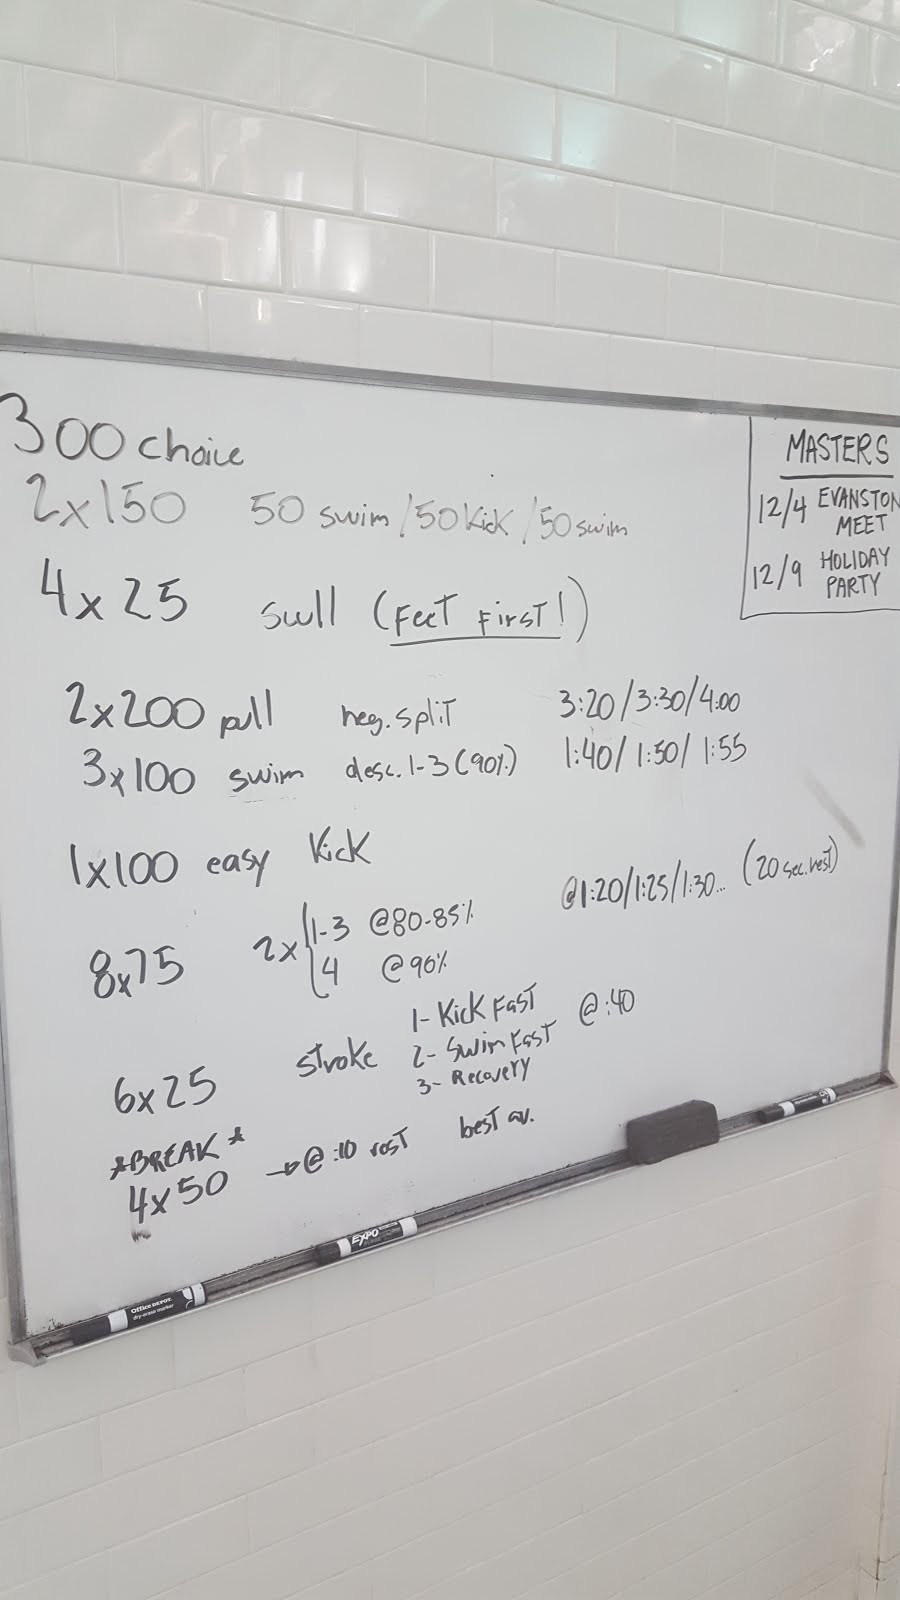 300 choice
2x150 50 swim/50 Kick/50 swim
4x25 scull (Feet First!)
2x200 pull neg. split 3:20/3:30/4:00
3x100 swim desc. 1-3 (90%) 1:40/1:50/1:55
1x100 easy Kick
8x75 2x { 1-3 @80-85% @1:20/1:25/1:30... (20 sec. rest)
4 @90%
6x25 stroke 1- Kick Fast @:40
2- Swim Fast
3- Recovery
*BREAK*
4x50 → @ :10 rest best av.
MASTERS
12/4 EVANSTON
MEET
12/9 HOLIDAY
PARTY
EXPO
Office DEPOT
dry-erase marker